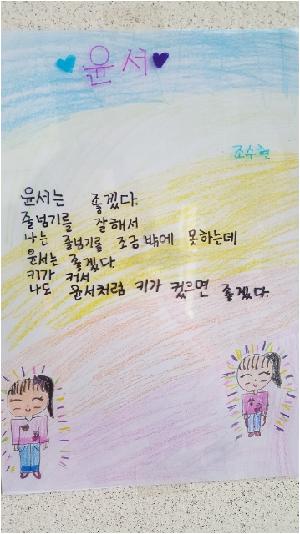 윤서
조수현
윤서는 좋겠다.
줄넘기를 잘해서
나는 줄넘기를 조금밖에 못하는데
윤서는 좋겠다.
키가 커서
나도 윤서처럼 키가 컸으면 좋겠다.